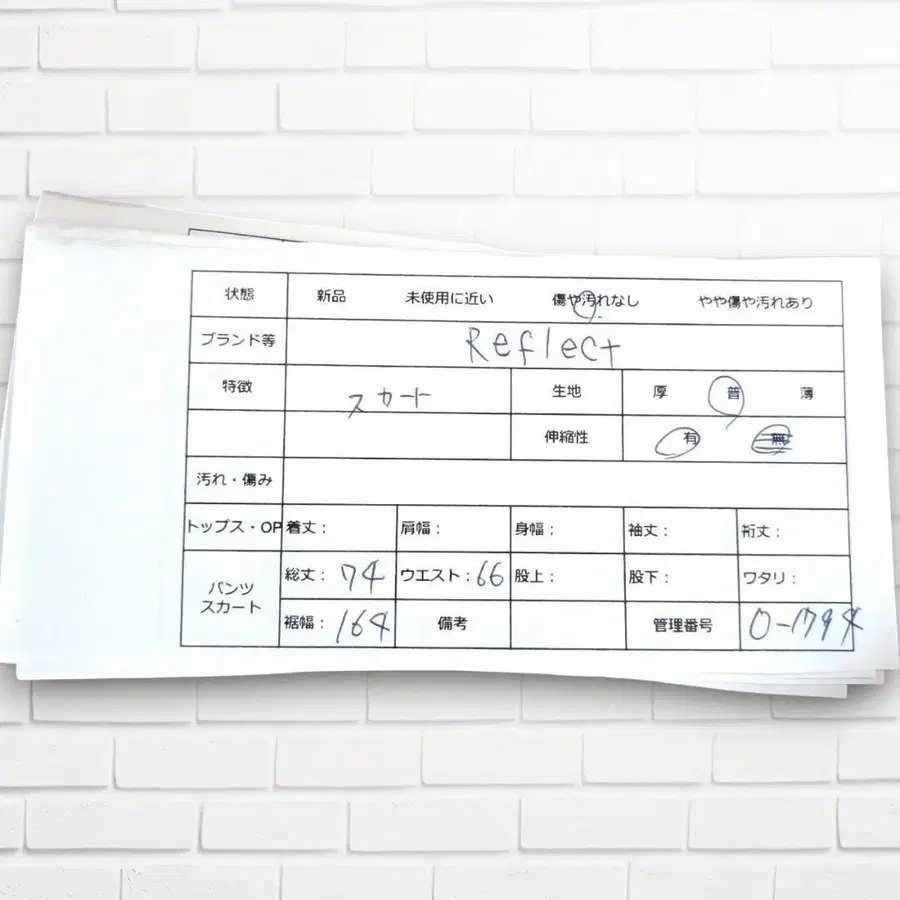 状態 新品 未使用に近い 傷や汚れなし やや傷や汚れあり
ブランド等 Reflect
特徴 スカート 生地 厚 普 薄
伸縮性 有 無
汚れ・傷み
トップス・OP 着丈: 肩幅: 身幅: 袖丈: 裄丈:
パンツ スカート 総丈: 74 ウエスト: 66 股上: 股下: ワタリ:
裾幅: 164 備考 管理番号 0-1794